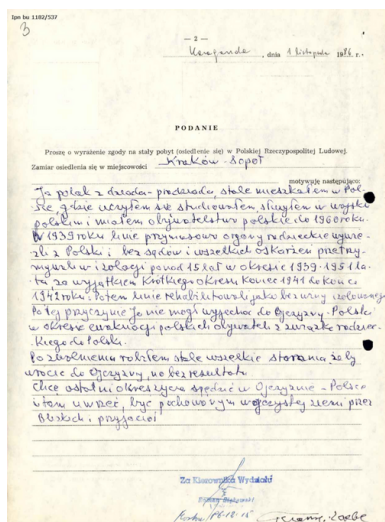 Ipn bu 1192/537
3
— 2 —
Karaganda, dnia 1 listopada 1986 r.
PODANIE
Proszę o wyrażenie zgody na stały pobyt (osiedlenie się) w Polskiej Rzeczypospolitej Ludowej.
Zamiar osiedlenia się w miejscowości Kraków - Sopot
motywuję następująco:
Ja polak z dziada-pradziada stale mieszkałem w Pol-
sce gdzie uczyłem się studiowałem służyłem w wojsku
polskim i miałem obywatelstwo polskie do 1960 roku.
W 1939 roku mnie przymusowo organy radzieckie wywie-
zli z Polski i bez sądów i wszelkich oskarżeń przetrzy-
mywali w izolacji ponad 15 lat w okresie 1939-1954 la-
ta za wyjątkiem krótkiego okresu koniec 1941 do końca
1942 roku. Potem mnie rehabilitowali jako bez winy izolowanego
Po tej przyczynie ja nie mógł wyjechać do Ojczyzny - Polski
w okresie ewakuacji polskich obywateli z związku radziec-
kiego do Polski.
Po zwolnieniu robiłem stale wszelkie starania, żeby
wrócić do Ojczyzny, no bez rezultatu
Chcę ostatni okres życia spędzić w Ojczyźnie - Polsce
i tam umrzeć, być pochowanym w ojczystej ziemi przez
Bliskich i przyjaciół
Za Kierownika Wydziału